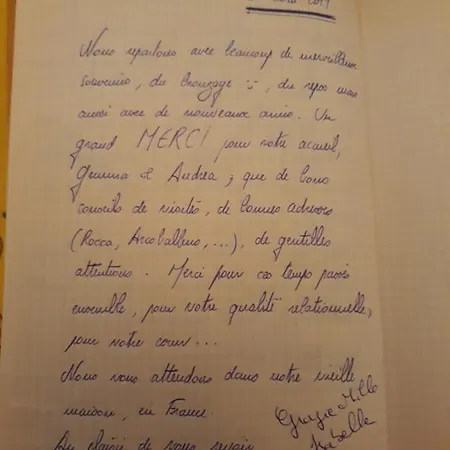 Nous repartons avec beaucoup de merveilleux
souvenirs, du bronzage ü, du repos mais
aussi avec de nouveaux amis. Un
grand MERCI pour votre accueil,
Gemma & Andrea, que de bons
conseils de visites, de bonnes adresses
(Rocca, Arcobaleno, ...), de gentilles
attentions. Merci pour ces temps passés
ensemble, pour votre qualité relationnelle,
pour votre coeur...
Nous vous attendons dans notre vieille
maison, en France.
Au plaisir de vous revoir
Grazie Mille
Isabelle